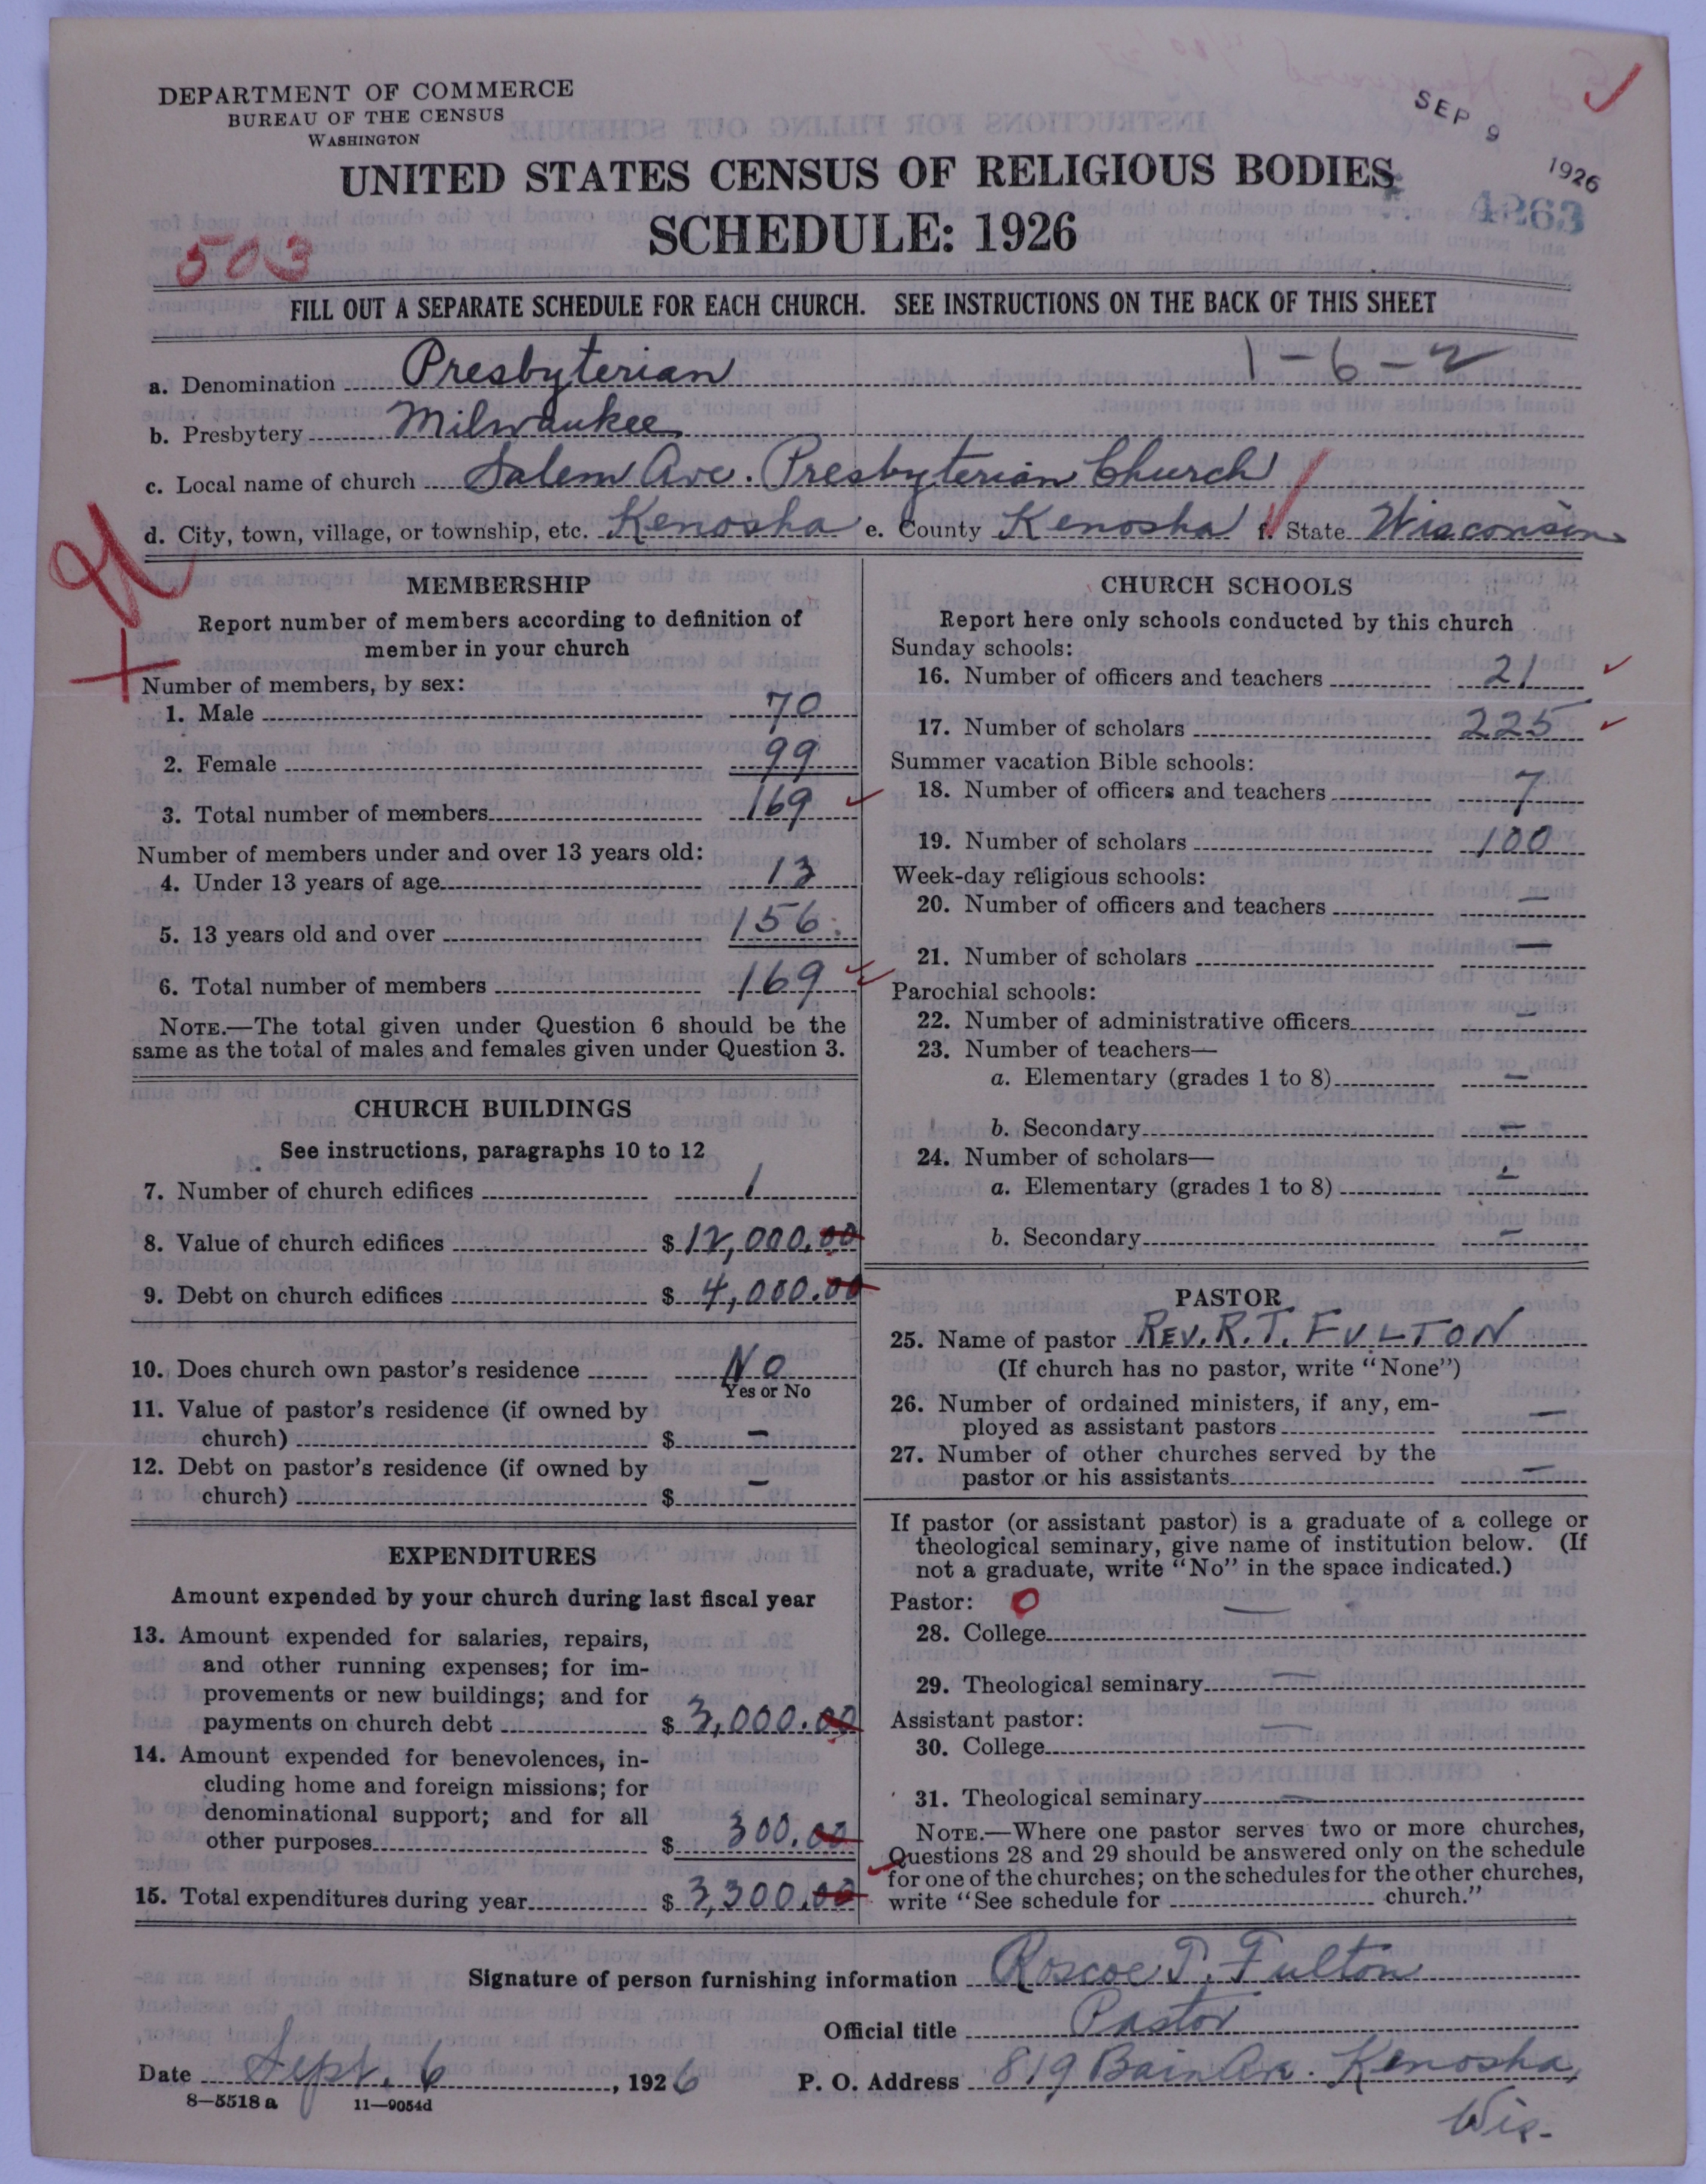 DEPARTMENT OF COMMERCE
BUREAU OF THE CENSUS
WASHINGTON
SEP 9 1926
UNITED STATES CENSUS OF RELIGIOUS BODIES
4263
SCHEDULE: 1926
503
FILL OUT A SEPARATE SCHEDULE FOR EACH CHURCH. SEE INSTRUCTIONS ON THE BACK OF THIS SHEET
1-6-2
a. Denomination Presbyterian
b. Presbytery Milwaukee
c. Local name of church Salem Ave. Presbyterian Church
d. City, town, village, or township, etc. Kenosha e. County Kenosha f. State Wisconsin
MEMBERSHIP
Report number of members according to definition of
member in your church
Number of members, by sex:
1. Male 70
2. Female 99
3. Total number of members 169
Number of members under and over 13 years old:
4. Under 13 years of age 13
5. 13 years old and over 156
6. Total number of members 169
NOTE.—The total given under Question 6 should be the
same as the total of males and females given under Question 3.
CHURCH BUILDINGS
See instructions, paragraphs 10 to 12
7. Number of church edifices 1
8. Value of church edifices $ 12,000.00
9. Debt on church edifices $ 4,000.00
10. Does church own pastor's residence No
Yes or No
11. Value of pastor's residence (if owned by
church) $ -
12. Debt on pastor's residence (if owned by
church) $ -
EXPENDITURES
Amount expended by your church during last fiscal year
13. Amount expended for salaries, repairs,
and other running expenses; for im-
provements or new buildings; and for
payments on church debt $ 3,000.00
14. Amount expended for benevolences, in-
cluding home and foreign missions; for
denominational support; and for all
other purposes $ 300.00
15. Total expenditures during year $ 3,300.00
CHURCH SCHOOLS
Report here only schools conducted by this church
Sunday schools:
16. Number of officers and teachers 21
17. Number of scholars 225
Summer vacation Bible schools:
18. Number of officers and teachers 7
19. Number of scholars 100
Week-day religious schools:
20. Number of officers and teachers -
21. Number of scholars -
Parochial schools:
22. Number of administrative officers -
23. Number of teachers—
a. Elementary (grades 1 to 8) -
b. Secondary -
24. Number of scholars—
a. Elementary (grades 1 to 8) -
b. Secondary -
PASTOR
25. Name of pastor REV. R. T. FULTON
(If church has no pastor, write "None")
26. Number of ordained ministers, if any, em-
ployed as assistant pastors -
27. Number of other churches served by the
pastor or his assistants -
If pastor (or assistant pastor) is a graduate of a college or
theological seminary, give name of institution below. (If
not a graduate, write "No" in the space indicated.)
Pastor: 0
28. College -
29. Theological seminary -
Assistant pastor:
30. College -
31. Theological seminary -
NOTE.—Where one pastor serves two or more churches,
Questions 28 and 29 should be answered only on the schedule
for one of the churches; on the schedules for the other churches,
write "See schedule for church."
Signature of person furnishing information Roscoe T. Fulton
Official title Pastor
Date Sept. 6, 1926 P. O. Address 819 Bain Av. Kenosha,
Wis.
8—5518 a 11—9054d